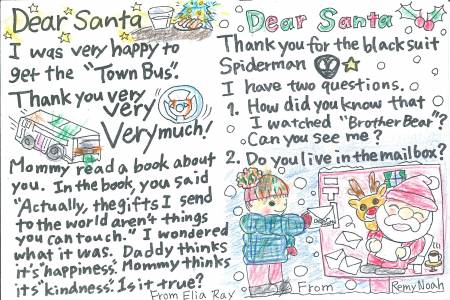 Dear Santa
I was very happy to
get the "Town Bus".
Thank you very
very
very much!
Mommy read a book about
you. In the book, you said
"Actually, the gifts I send
to the world aren't things
you can touch." I wondered
what it was. Daddy thinks
it's "happiness". Mommy thinks
it's "kindness". Is it true?
From Elia Ray
Dear Santa
Thank you for the black suit
Spiderman
I have two questions.
1. How did you know that
I watched "Brother Bear"?
Can you see me?
2. Do you live in the mailbox?
From Remy Noah